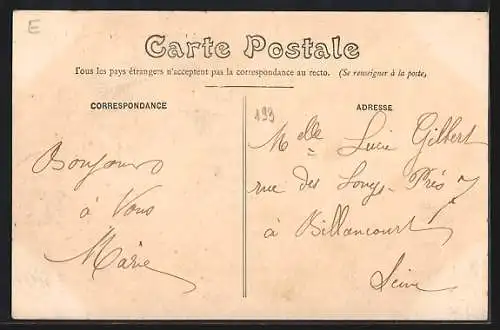 E
Carte Postale
Tous les pays étrangers n'acceptent pas la correspondance au recto. (Se renseigner à la poste,
CORRESPONDANCE
Bonjour
à Vous
Marie
ADRESSE
193
Melle Lucie Gilbert
rue des Longs-Prés 7
à Billancourt
Seine